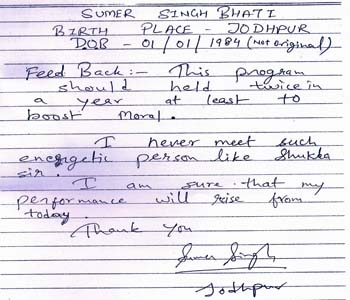 SUMER SINGH BHATI
BIRTH PLACE - JODHPUR
DOB - 01/01/1984 (Not original)
Feed Back:- This program
should held twice in
a year at least to
boost moral.
I never meet such
energetic person like Shukla
sir.
I am sure that my
performance will rise from
today.
Thank You
Sumer Singh
Jodhpur